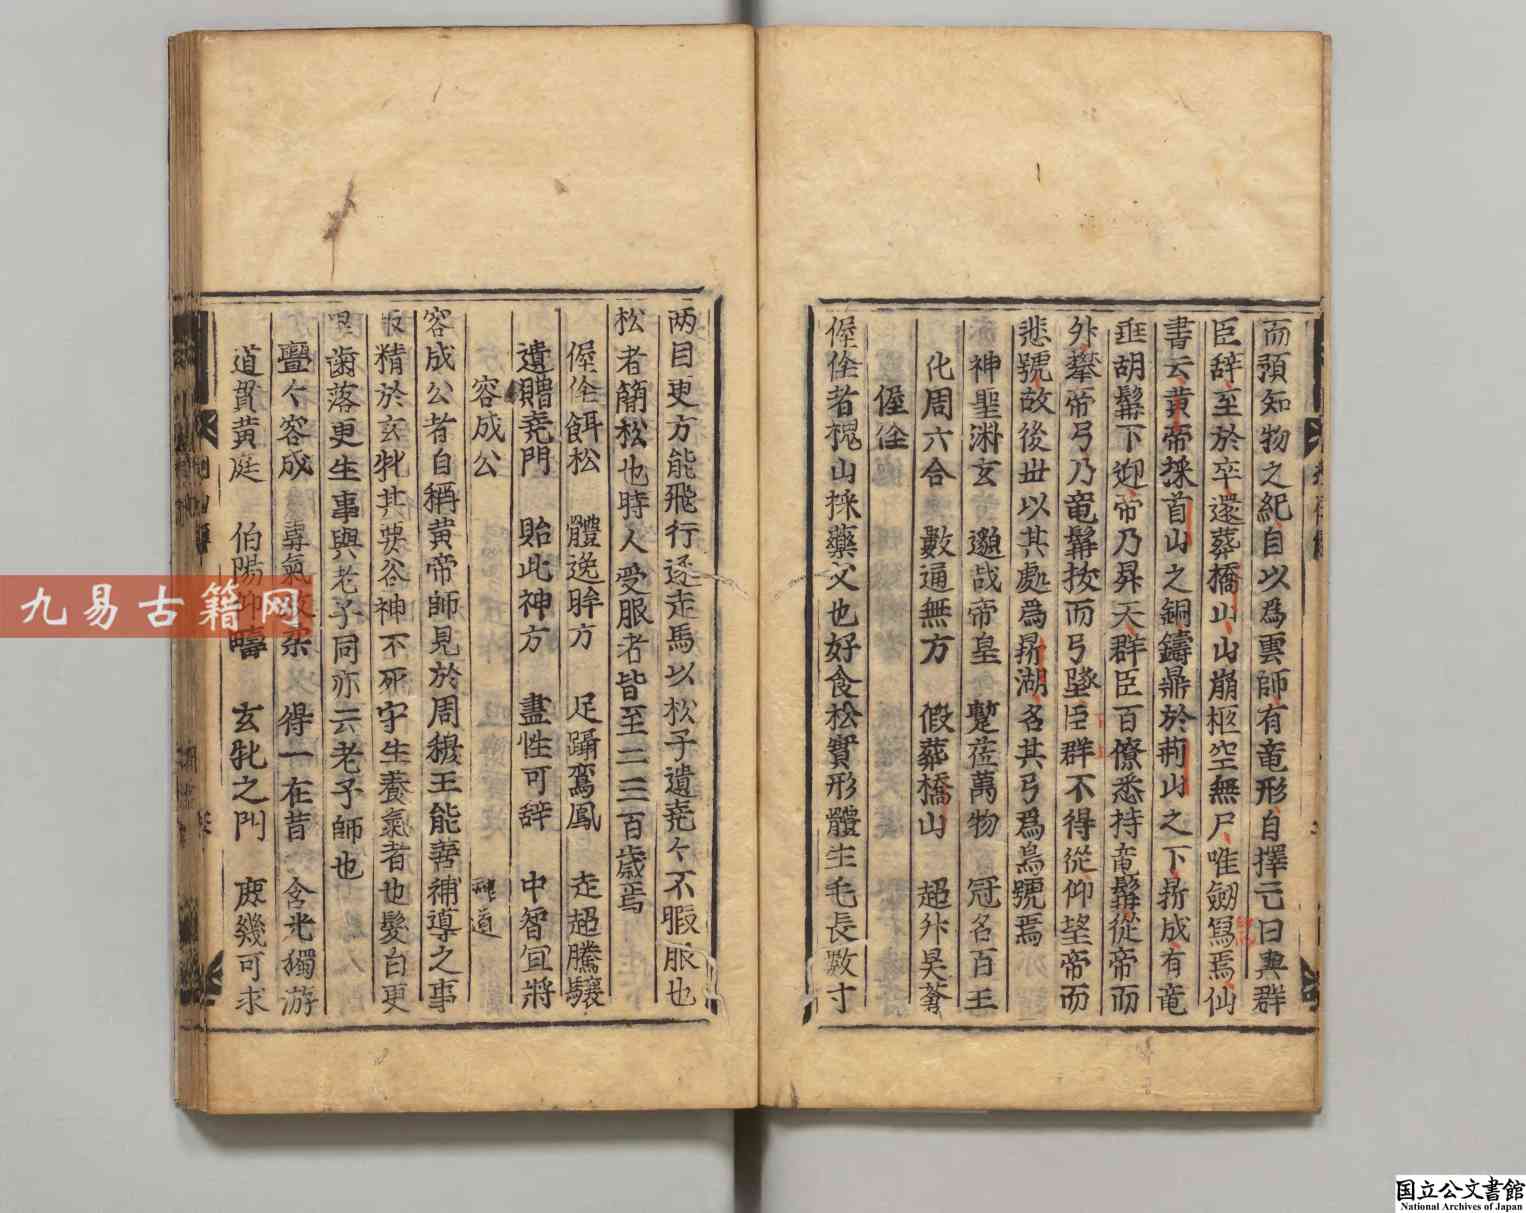 而預知物之紀自以爲雲師有竜形自擇亡日與群
臣辞至於卒還葬橋山山崩柩空無尸唯劔舄焉仙
書云黄帝採首山之銅鑄鼎於荊山之下鼎成有竜
垂胡髯下迎帝乃昇天群臣百僚悉持竜髯從帝而
升攀帝弓乃竜髯抜而弓墜臣群不得從仰望帝而
悲號故後世以其處爲鼎湖名其弓爲烏號焉
神聖淵玄 邈哉帝皇 蹔莅萬物 冠名百王
化周六合 數通無方 假葬橋山 超升昊蒼
偓佺
偓佺者槐山採藥父也好食松實形體生毛長數寸
两目更方能飛行逐走馬以松子遺尭々不暇服也
松者簡松也時人受服者皆至二三百歳焉
偓佺餌松 體逸眸方 足躡鸞鳳 走超騰驤
遺贈尭門 貽此神方 盡性可辞 中智宜將
容成公
道
容成公者自稱黄帝師見於周穆王能善補導之事
取精於玄牝其要谷神不死守生養氣者也髪白更
黒歯落更生事與老子同亦云老子師也
亹々容成 專氣致柔 得一在昔 含光獨游
道貫黄庭 伯陽仰疇 玄牝之門 庶幾可求
九易古籍网
国立公文書館
National Archives of Japan